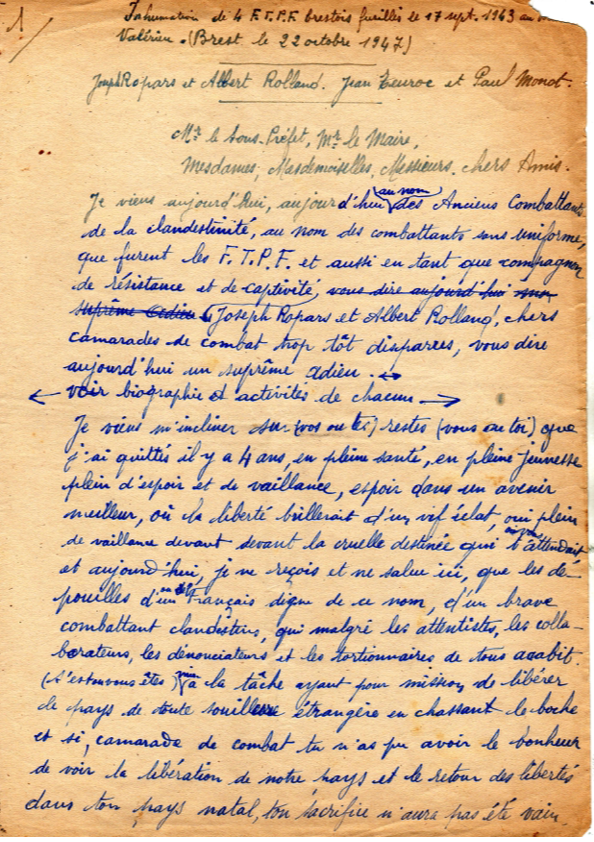 1
Inhumation de 4 F.T.P.F. brestois fusillés le 17 sept. 1943 au
Valérien. (Brest le 22 octobre 1947)
Joseph Ropars et Albert Rolland. Jean Teuroc et Paul Monot.
Mr le Sous-Préfet, Mr le Maire,
Mesdames, Mesdemoiselles, Messieurs, chers Amis.
Je viens aujourd'hui, aujourd'hui au nom des Anciens Combattants
de la clandestinité, au nom des combattants sans uniforme,
que furent les F.T.P.F. et aussi en tant que compagnon
de résistance et de captivité, vous dire aujourd'hui mon
suprême adieu Joseph Ropars et Albert Rolland, chers
camarades de combat trop tôt disparus, vous dire
aujourd'hui un suprême adieu.
voir biographie et activités de chacun
Je viens m'incliner sur (vos ou tes) restes (vous ou toi) que
j'ai quittés il y a 4 ans, en pleine santé, en pleine jeunesse
plein d'espoir et de vaillance, espoir dans un avenir
meilleur, où la liberté brillerait d'un vif éclat, oui plein
de vaillance devant devant la cruelle destinée qui t'attendait
et aujourd'hui, je ne reçois et ne salue ici, que les dé-
pouilles d'un Français digne de ce nom, d'un brave
combattant clandestin, qui malgré les attentistes, les colla-
borateurs, les dénonciateurs et les tortionnaires de tous acabit.
(t'es ou vous êtes) mis à la tâche ayant pour mission de libérer
le pays de toute souillure étrangère en chassant le boche
et si, camarade de combat tu n'as pu avoir le bonheur
de voir la libération de notre pays et le retour des libertés
dans ton pays natal, ton sacrifice n'aura pas été vain.